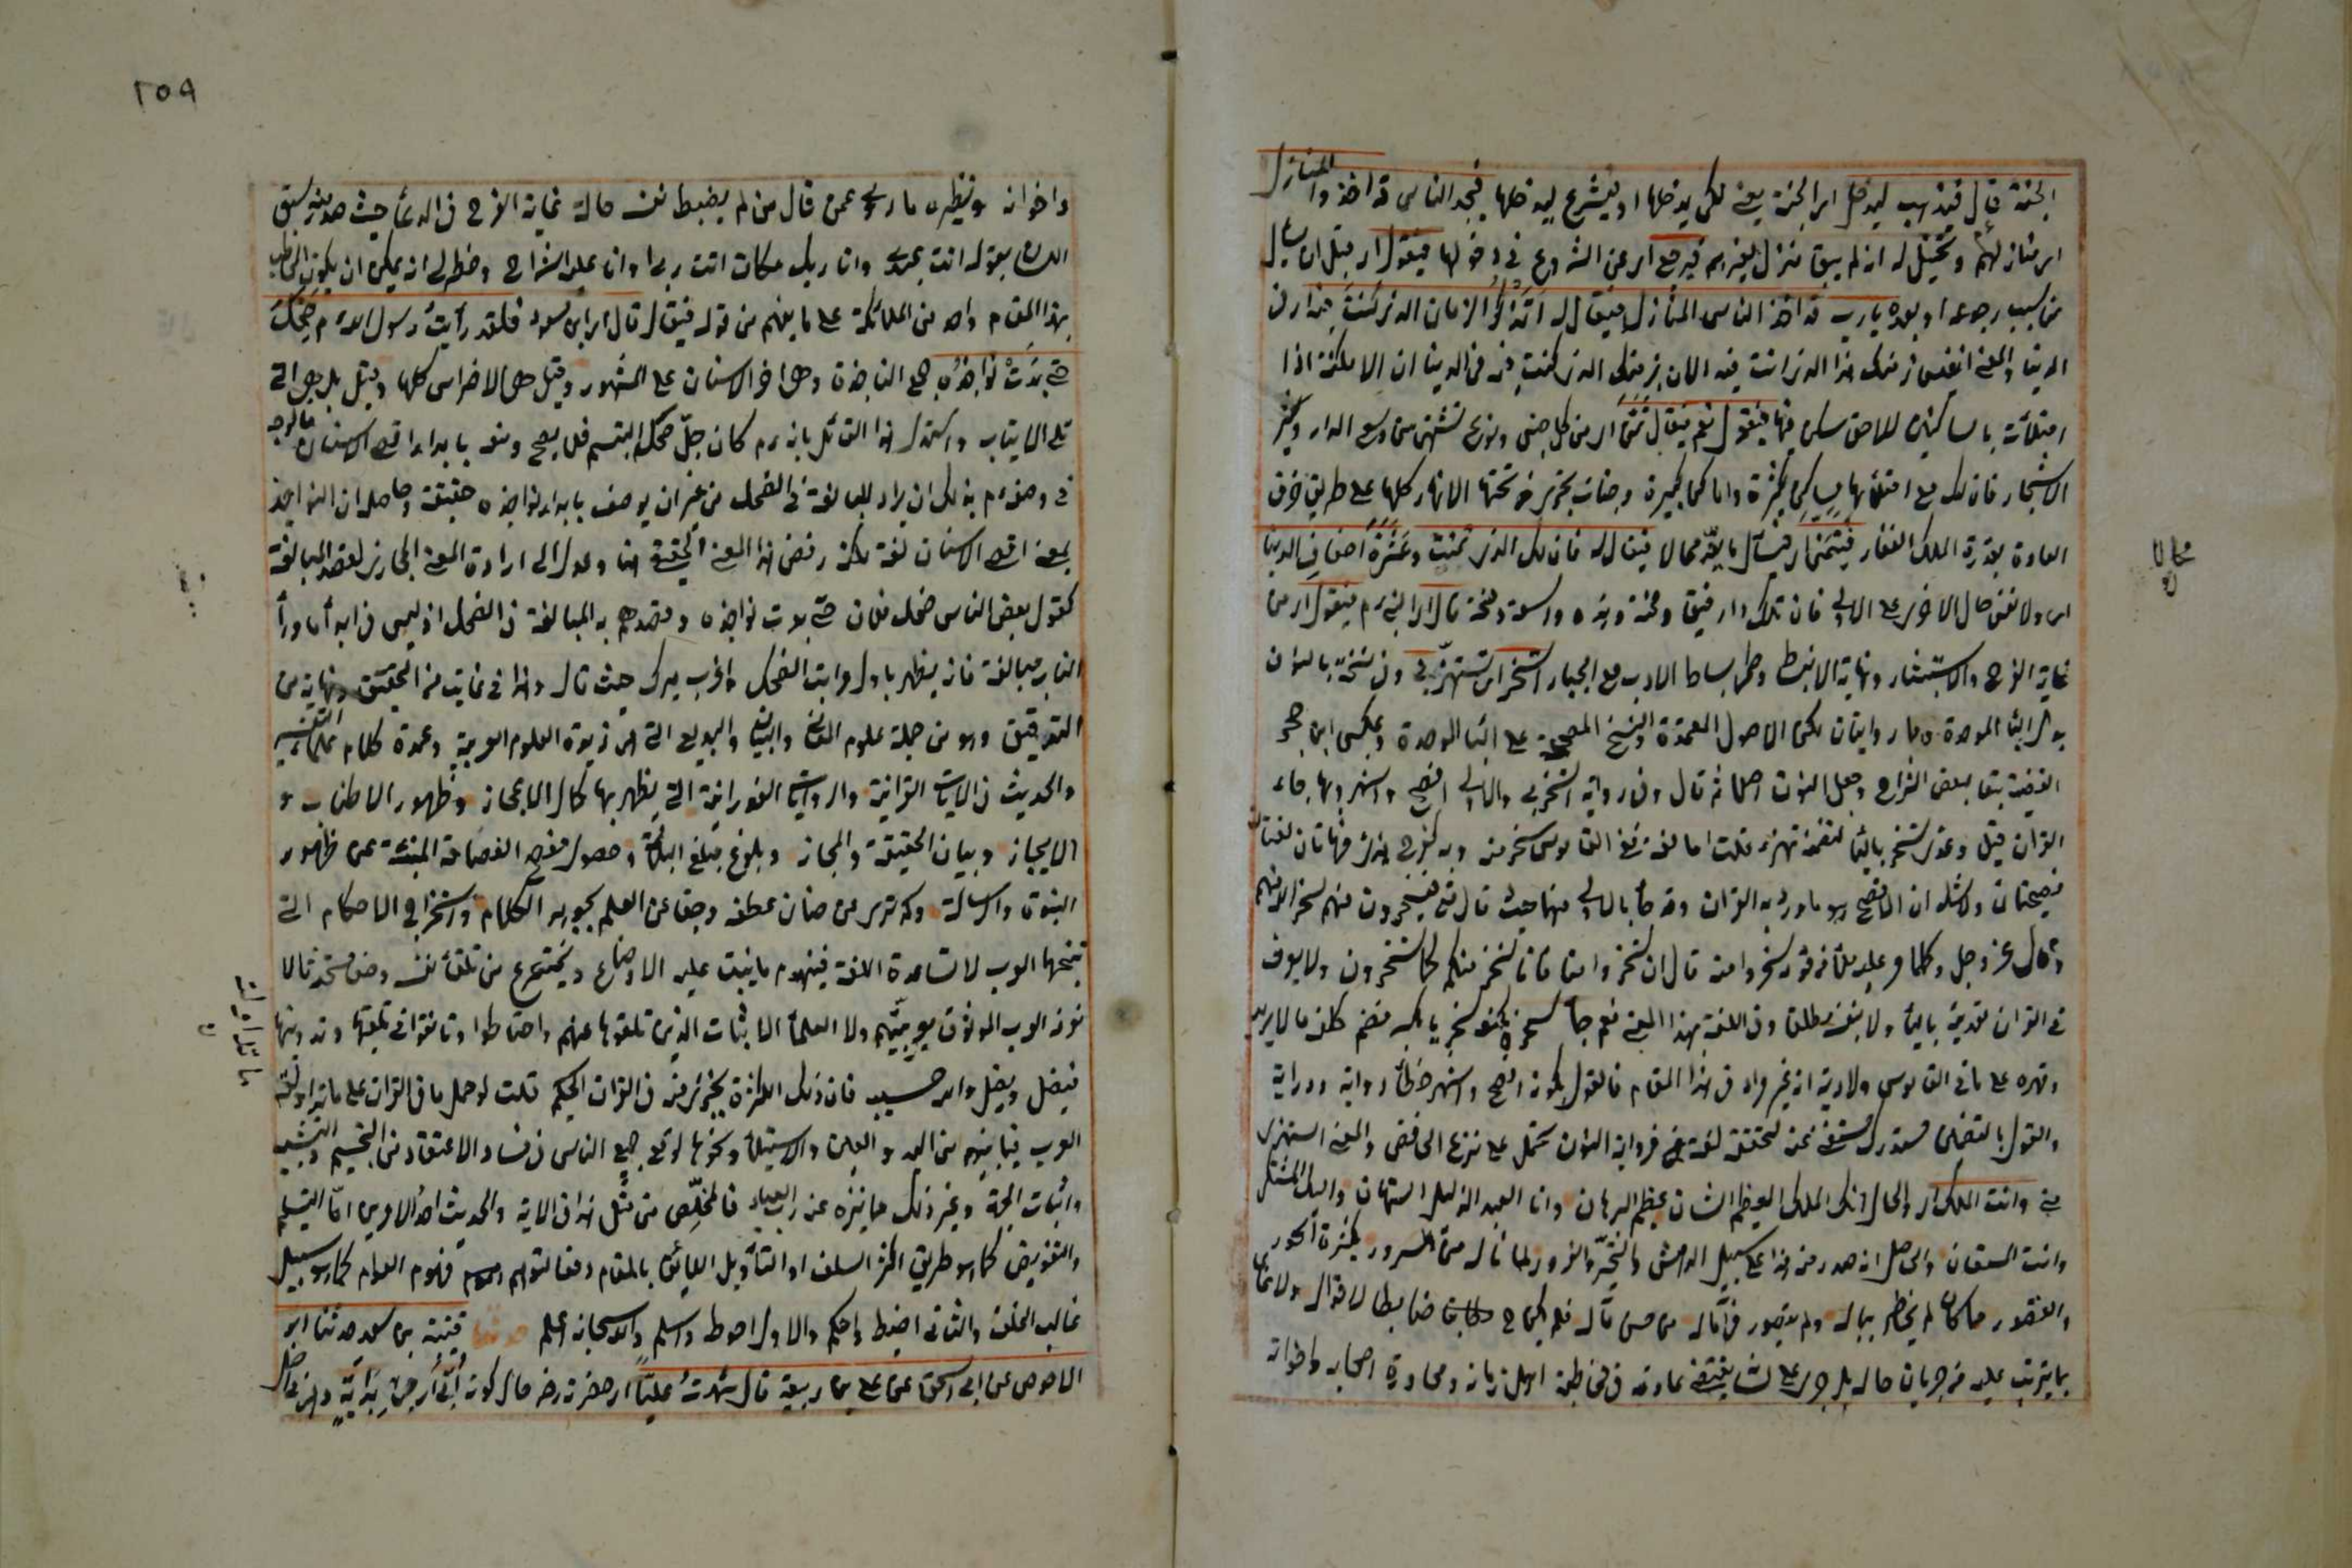 الجنة قال فيذهب ليدخل اي الجنة يعني لكي يدخلها او ليشرع ليدخلها فيجد الناس قد اخذوا المنازل
اي منازلهم و تخيل له انه لم يبق منزل لغيرهم فيرجع اي عن الشروع في دخولها فيقول اي قبل ان يسأل
من سبب رجوعه او بعده يارب قد اخذ الناس المنازل فيقال له اتذكر الزمان الذي كنت فيه اي في
الدنيا والمعنى اتقيس زمنك هذا الذي انت فيه الان بزمنك الذي كنت فيه في الدنيا ان الامكنة اذا
امتلأت بالساكنين للاحق مسكن فيها فيقول نعم فيقال تمن اي من كل جنس ونوع تشتهي من وسع الدار وكثرة
الاشجار فان لك مع امتلائها مساكن كثيرة واماكن كبيرة وجنات تجري من تحتها الانهار كلها على طريق خرق
العادة بقدرة الملك الغفار فيتمنى اي فيسأل ما يعده محالا فيقال له فان لك الذي تمنيت وعشرة اضعاف الدنيا
اي ولا تقس حال الاخرى على الاولى فان تلك دار ضيق ومحنة وهذه دار سعة ومنحة قال اي النبي م فيقول اي من
غاية الفرح والاستبشار ونهاية الانبساط وطي بساط الادب مع الجبار اتسخر اي تستهزئ بي وفي نسخة بالنون
بدل الباء الموحدة وهما روايتان لكن الاصول المعتمدة والنسخ المصححة على الباء الموحدة وعكس ابن حجر
القضية تبعا لبعض الشراح وجعل النون اصلا ثم قال وفي رواية اتسخر بي والاولى افصح واشهر وبها جاء
القران قيل وعدى تسخر بالباء لتضمنه تهزء قلت اما لغة ففي القاموس سخر منه وبه كفرح هزئ فهما لغتان
فصيحتان ولا شك ان الافصح هو ما ورد به القران وقد جاء بالاولى منهما حيث قال تعالى فيسخرون منهم سخر الله منهم
وقال عز وجل وكلما مر عليه ملأ من قومه سخروا منه قال ان تسخروا منا فانا نسخر منكم كما تسخرون ولا يعرف
في القران تعديته بالباء ولا بنفسه مطلقا وفي اللغة بهذا المعنى نعم جاء سخره كمنعه سخريا بالكسر ويضم كلفه ما لا يريد
وقهره على ما في القاموس ولا ريبة انه غير مراد في هذا المقام فالقول بكونه افصح واشهر خطأ رواية ودراية
والقول بالتضمين مستدرك مستغنى عنه لتحققه لغة ففي رواية النون تحمل على نزع الخافض والمعنى استهزئ
مني وانت الملك اي والحال انك الملك العظيم الشان عظيم البرهان وانا العبد الذليل المستهان واليك المشتكى
وانت المستعان والحاصل انه صدر منه هذا على سبيل الدهش والتحير والغرور لما ناله من السرور بكثرة الحور
والقصور مما كان لم يخطر بباله ولم يتصور في اماله من حسن مآله فلم يكن ح ضابطا لاقواله ولا عالما
بما يترتب عليه من جريان حاله بل جرى على لسانه بمقتضى عادته في مخاطبة اهل زمانه ومحاورة اصحابه واخوانه
محالا
٢٥٩
واخوانه ونظيره ما روي عمن قال من لم يضبط نفسه حالة غاية الفرح في الدعاء حيث صدر منه سبق
اللسان بقوله انت عبدي وانا ربك مكان انت ربي وانا عبدك الشراح وخطر لي انه يمكن ان يكون المخاطب
بهذا المقام واحد من الملائكة على ما يفهم من قوله فيقال قال اي ابن مسعود فلقد رأيت رسول الله م ضحك
حتى بدت نواجذه جمع الناجذة وهي اخر الاسنان على المشهور وقيل هي الاضراس كلها وقيل بل هي التي
تلي الانياب واستدل هذا القائل بانه م كان جل ضحكه التبسم فلا يصح وصفه بابداء اقصى الاسنان فالوجه
في وصفه م بذلك ان يراد المبالغة في الضحك من غير ان يوصف بابداء نواجذه حقيقة وحاصله ان النواجذ
بمعنى اقصى الاسنان لغة لكنه رفض هذا المعنى الحقيقي هنا وعدل الى ارادة المعنى المجازي لقصد المبالغة
كقول بعض الناس ضحك فلان حتى بدت نواجذه وقصدهم به المبالغة في الضحك اذ ليس في ابداء ما وراء
الناب مبالغة فانه يظهر باول مراتب الضحك واغرب ميرك حيث قال وهذا في غاية من التحقيق ونهاية من
التدقيق وهو من جملة علوم المعاني والبيان والبديع التي هي زبدة العلوم العربية وعمدة كلام علماء التفسير
والحديث في الايات القرانية والروايات النورانية التي يظهر بها كمال الاعجاز وظهور الاطناب و
الايجاز وبيان الحقيقة والمجاز وبلوغ مبلغ البلاغة وحصول مفصح الفصاحة المنبئة عن ظهور
النبوة والرسالة وكم ترى من ضان عطفه وجفا عن العلم بجوهر الكلام واستخراج الاحكام التي
نتيجتها العرب لا تساعده اللغة فيفهم ما يبنيت عليه الاوضاع ويخترع من تلقاء نفسه وضعا مستحدثا لا
تعرفه العرب الموثوق بعربيتهم ولا العلماء الاثبات الذين تلقوها عنهم واحتاطوا وتانقوا في تلقيها وتدوينها
فيضل ويضل والله حسيبه فان ذلك اكثره يجري منه في القران الحكيم قلت لو حمل ما في القران على ما تداولته
العرب فيما بينهم من اليد والعين والاستيلاء ونحوها لوقع جميع الناس في فساد الاعتقاد من التجسيم والتشبيه
واثبات الجهة وغير ذلك مما ينزه عنه رب العباد فالمخلص من مثل هذا في الاية والحديث احد الامرين اما التسليم
والتفويض كما هو طريق اكثر السلف او التأويل اللائق بالمقام دفعا لتوهم فهوم العوام كما هو سبيل
غالب الخلف والثاني اضبط واحكم والاول احوط واسلم والله سبحانه اعلم حدثنا قتيبة بن سعيد حدثنا ابو
الاحوص عن ابي اسحق عن علي بن ربيعة قال شهدت عليا اي حضرت رضي حال كونه اتي اي جيء بدابة
ما تداولته